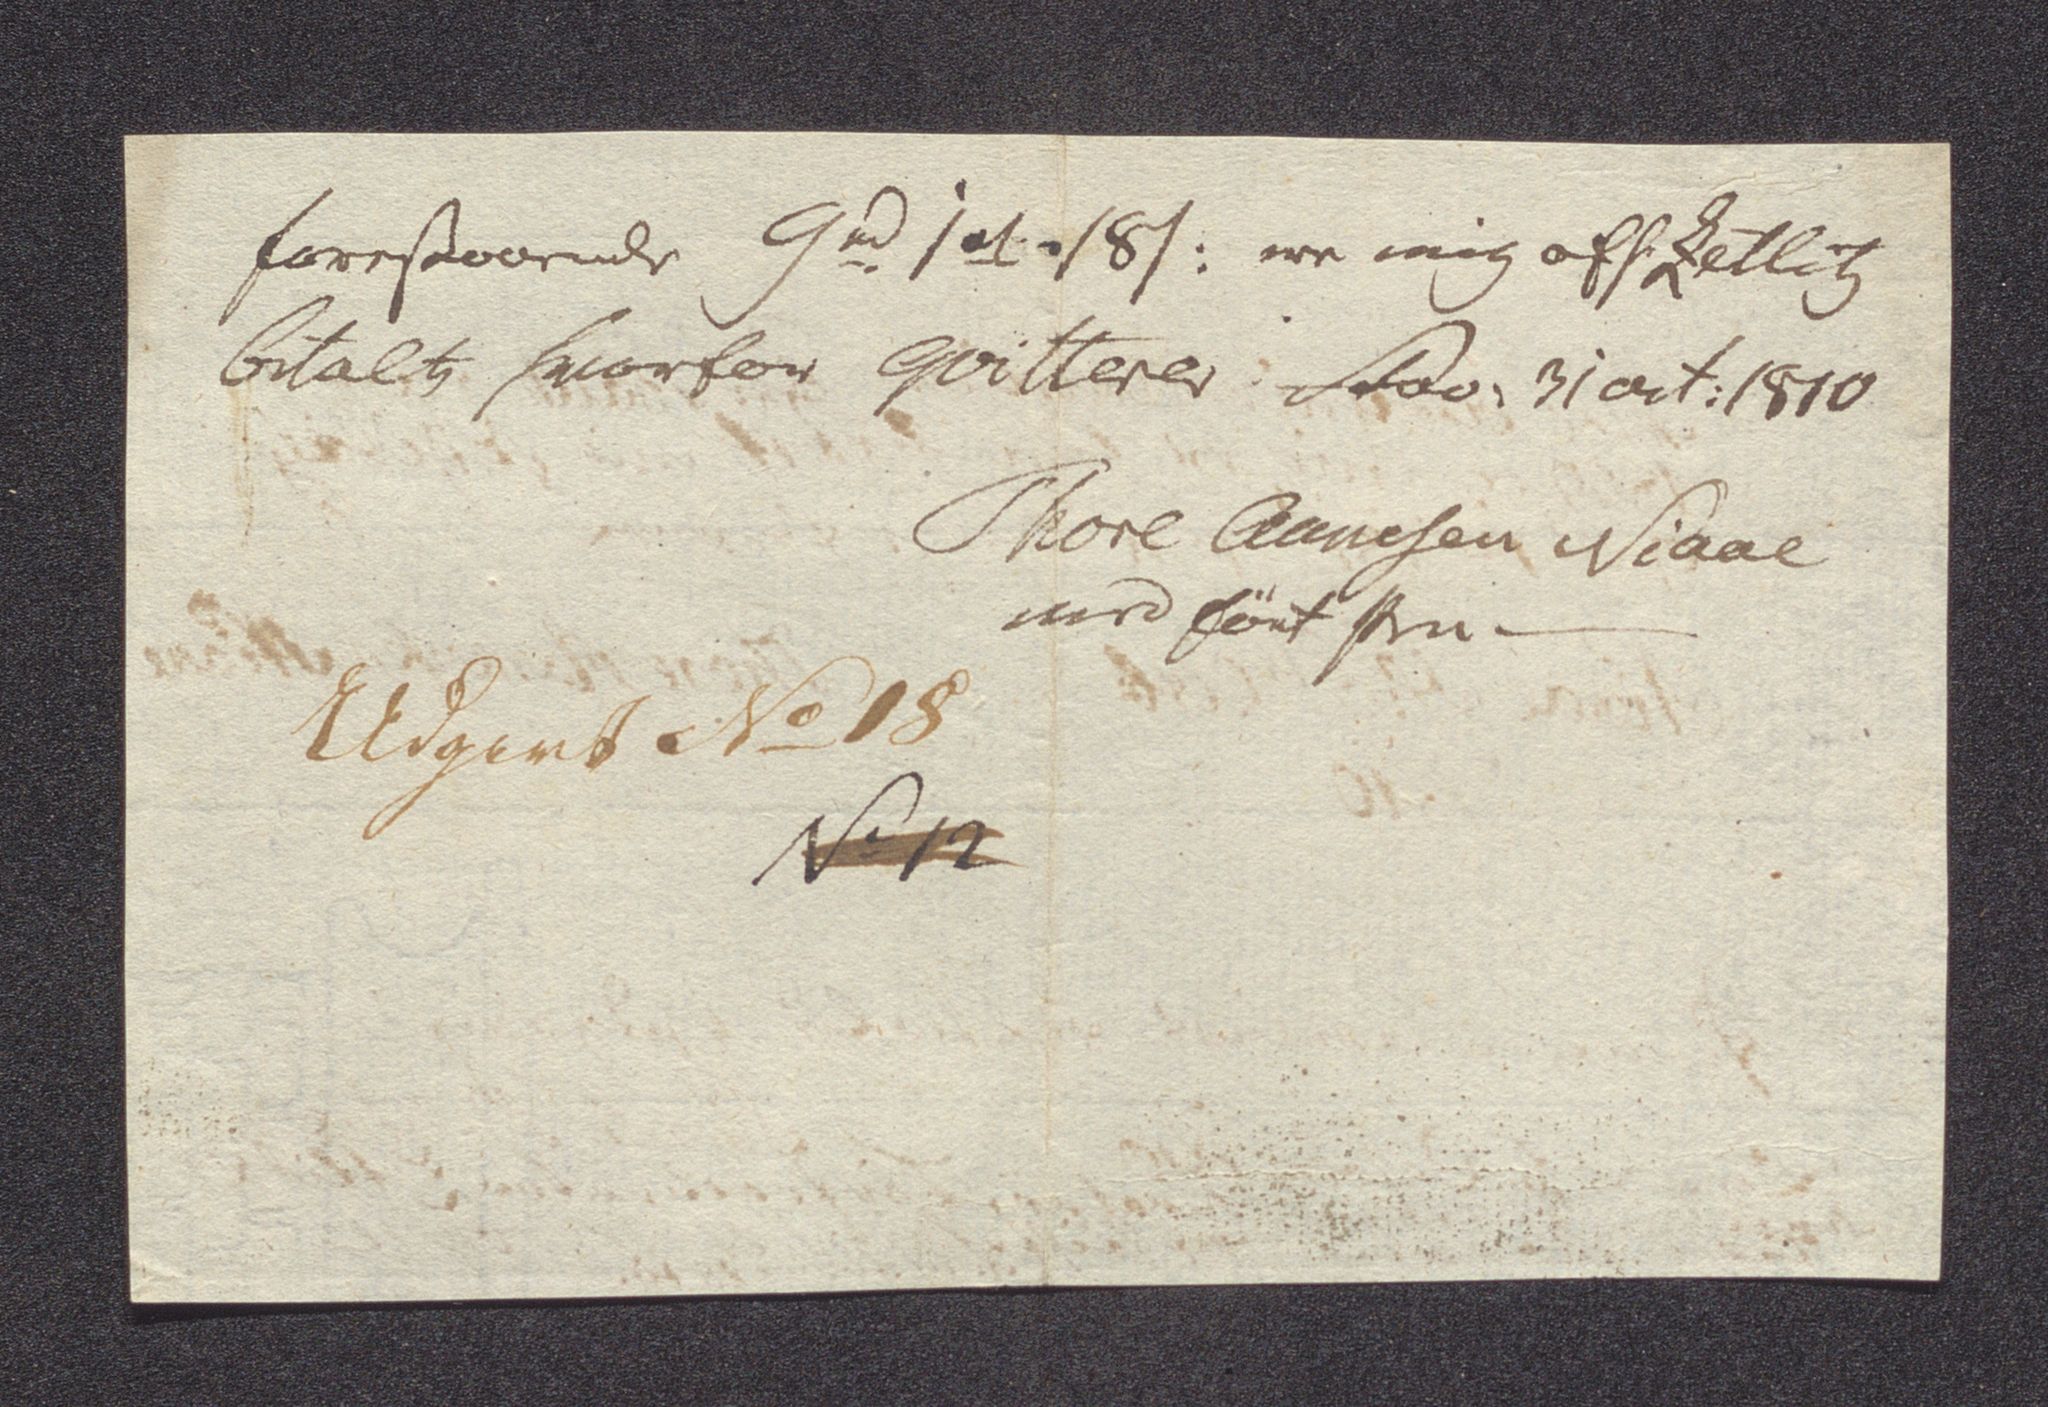 forestaaende 9 rd 1 ort 18 s: er mig af Hr Zetlitz
bitalt hvorfor qvitterer Stav: 31 oct: 1810
Thore Aanesen Niaae
med ført Pen
Udgivt No 18
No 12